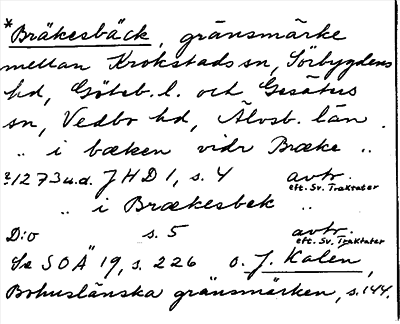 *Bräkesbäck, gränsmärke
mellan Krokstads sn, Sörbygdens
hd, Göteb. l. och Gesäters
sn, Vedbo hd, Älvsb. län.
„ i bæken vidr Bræke „
?1273 u.d. JHD 1, s. 4 avtr.
eft. Sv. Traktater
„ i Brækesbek „
D:o s. 5 avtr.
eft. Sv. Traktater
Se SOÄ 19, s. 226 o. J. Kalen,
Bohuslänska gränsmärken, s. 144.